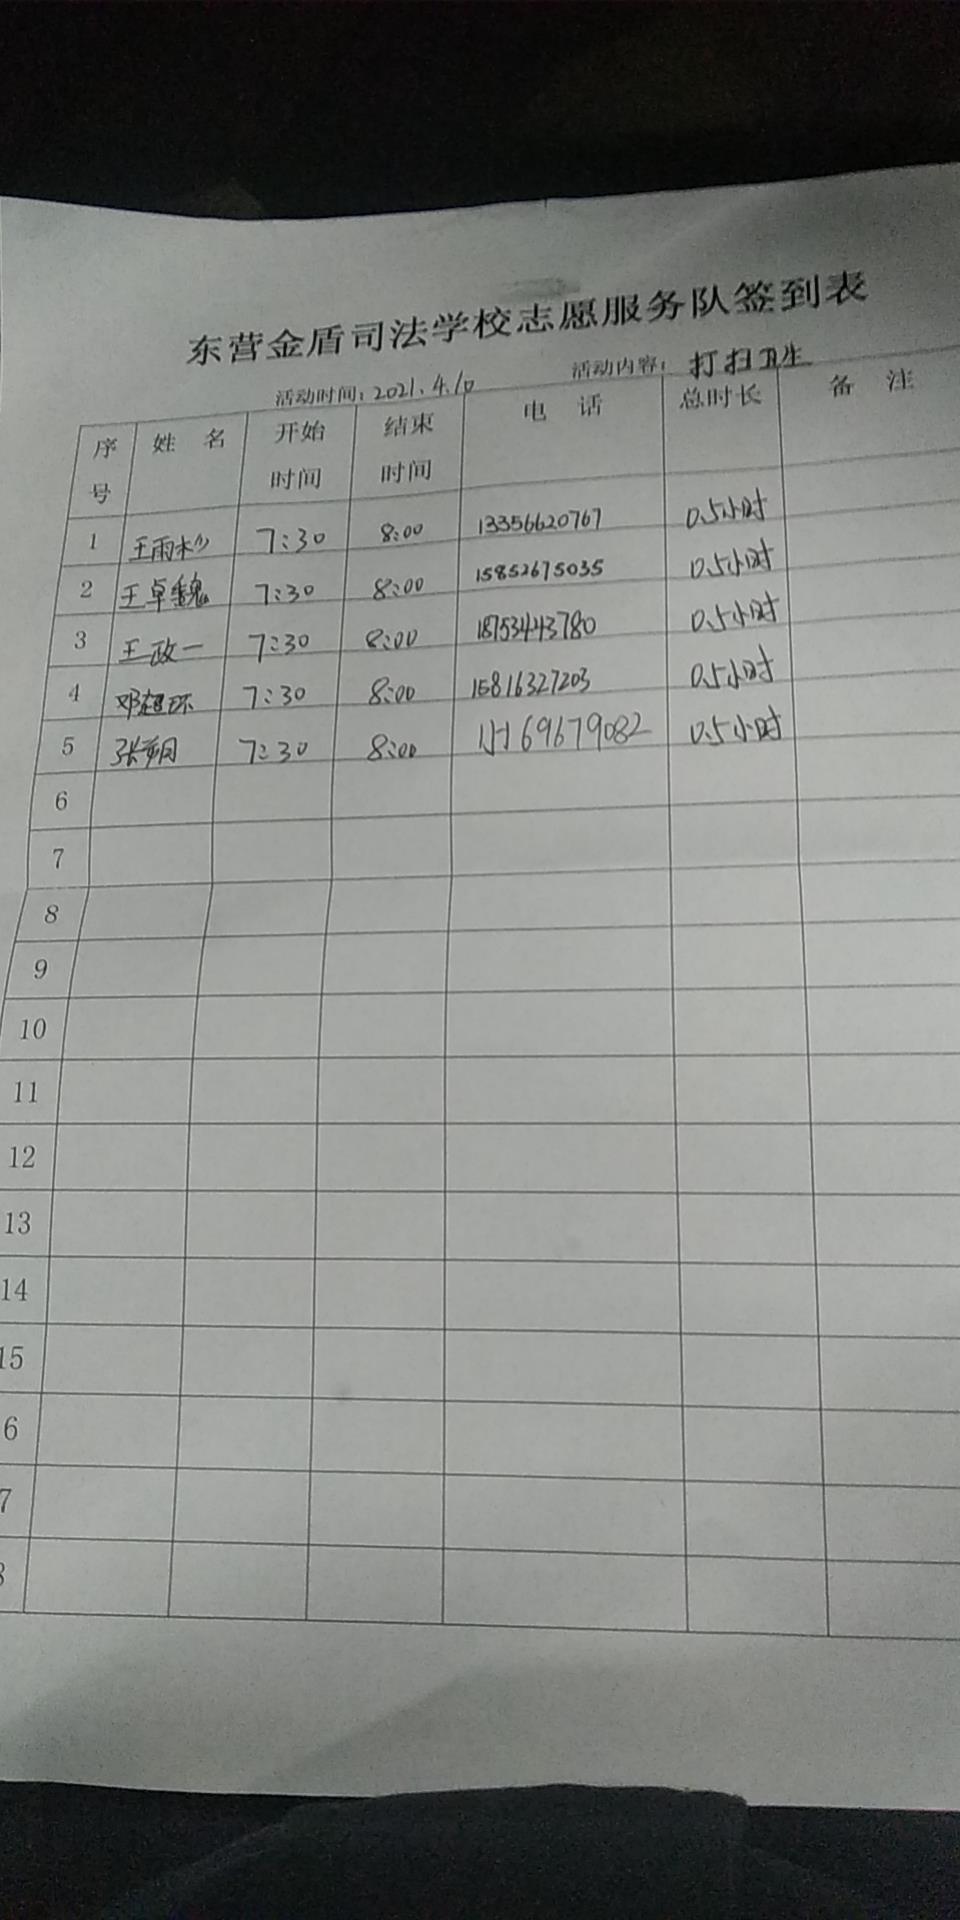 东营金盾司法学校志愿服务队签到表
活动时间：2021.4.10 活动内容：打扫卫生
序号 姓名 开始时间 结束时间 电话 总时长 备注
1 王雨杉 7:30 8:00 13356620767 0.5小时
2 王卓巍 7:30 8:00 15852675035 0.5小时
3 王政一 7:30 8:00 18753443780 0.5小时
4 邓超环 7:30 8:00 15816327203 0.5小时
5 张朔 7:30 8:00 69679082 0.5小时
6
7
8
9
10
11
12
13
14
15
6
7